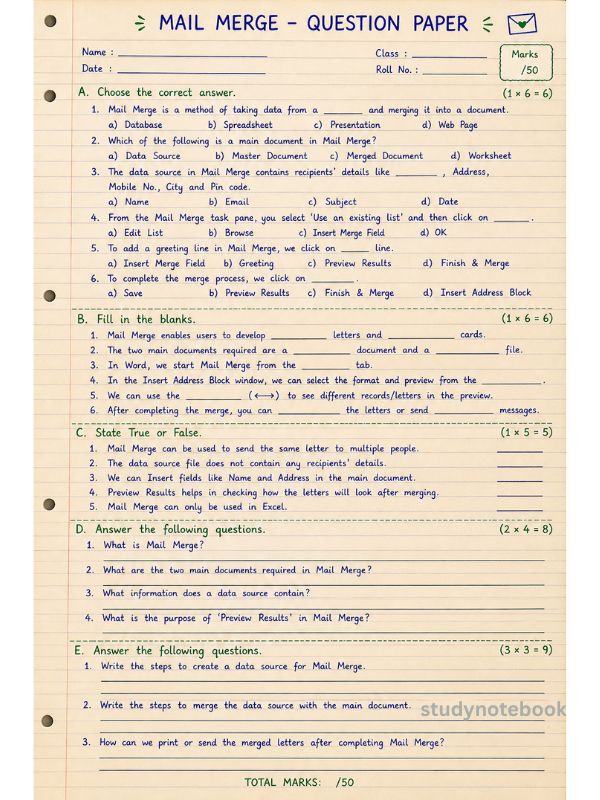 MAIL MERGE – QUESTION PAPER
Name : ____________ Class : ____________ Marks
Date : ____________ Roll No. : ____________ /50
A. Choose the correct answer. (1 × 6 = 6)
1. Mail Merge is a method of taking data from a _______ and merging it into a document.
a) Database b) Spreadsheet c) Presentation d) Web Page
2. Which of the following is a main document in Mail Merge?
a) Data Source b) Master Document c) Merged Document d) Worksheet
3. The data source in Mail Merge contains recipients' details like _______ , Address,
Mobile No., City and Pin code.
a) Name b) Email c) Subject d) Date
4. From the Mail Merge task pane, you select 'Use an existing list' and then click on _______ .
a) Edit List b) Browse c) Insert Merge Field d) OK
5. To add a greeting line in Mail Merge, we click on _____ line.
a) Insert Merge Field b) Greeting c) Preview Results d) Finish & Merge
6. To complete the merge process, we click on ________ .
a) Save b) Preview Results c) Finish & Merge d) Insert Address Block
B. Fill in the blanks. (1 × 6 = 6)
1. Mail Merge enables users to develop __________ letters and ____________ cards.
2. The two main documents required are a __________ document and a ___________ file.
3. In Word, we start Mail Merge from the _________ tab.
4. In the Insert Address Block window, we can select the format and preview from the ___________ .
5. We can use the __________ (⟷) to see different records/letters in the preview.
6. After completing the merge, you can ___________ the letters or send __________ messages.
C. State True or False. (1 × 5 = 5)
1. Mail Merge can be used to send the same letter to multiple people. ________
2. The data source file does not contain any recipients' details. ________
3. We can Insert fields like Name and Address in the main document. ________
4. Preview Results helps in checking how the letters will look after merging. ________
5. Mail Merge can only be used in Excel. ________
D. Answer the following questions. (2 × 4 = 8)
1. What is Mail Merge?
2. What are the two main documents required in Mail Merge?
3. What information does a data source contain?
4. What is the purpose of 'Preview Results' in Mail Merge?
E. Answer the following questions. (3 × 3 = 9)
1. Write the steps to create a data source for Mail Merge.
2. Write the steps to merge the data source with the main document.
studynotebook
3. How can we print or send the merged letters after completing Mail Merge?
TOTAL MARKS: /50